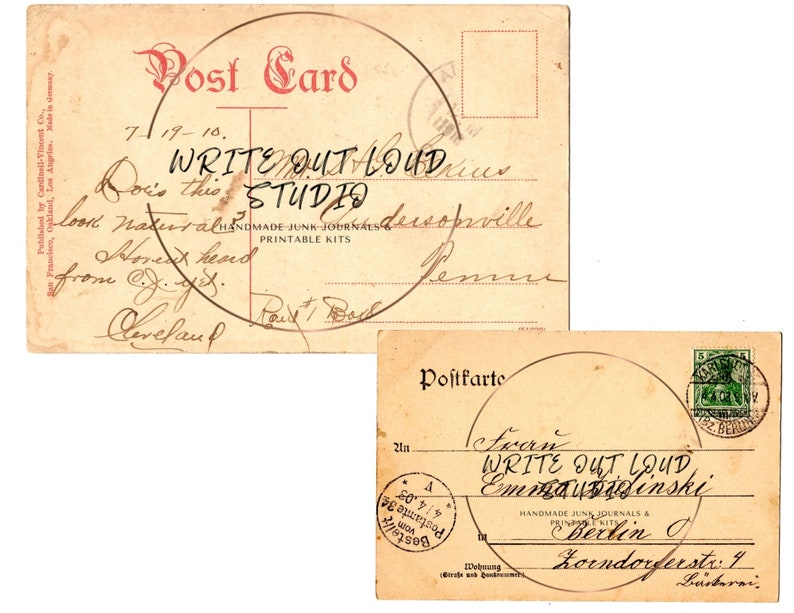 Post Card
Published by Cardinell-Vincent Co.,
San Francisco, Oakland, Los Angeles. Made in Germany.
7-19-10.
Does this
look natural?
Havent heard
from C.J. yet.
Cleveland
Andersonville
Penna
Rout #1 Box
WRITE OUT LOUD
STUDIO
HANDMADE JUNK JOURNALS &
PRINTABLE KITS
Postkarte
5 5
An Frau
Emma
in Berlin O
Zorndorferstr. 4
Bäckerei.
Wohnung
(Straße und Hausnummer)
Bestellt
vom
Postamte 34
4/4.03
V
BZ. BERLIN
WRITE OUT LOUD
STUDIO
HANDMADE JUNK JOURNALS &
PRINTABLE KITS